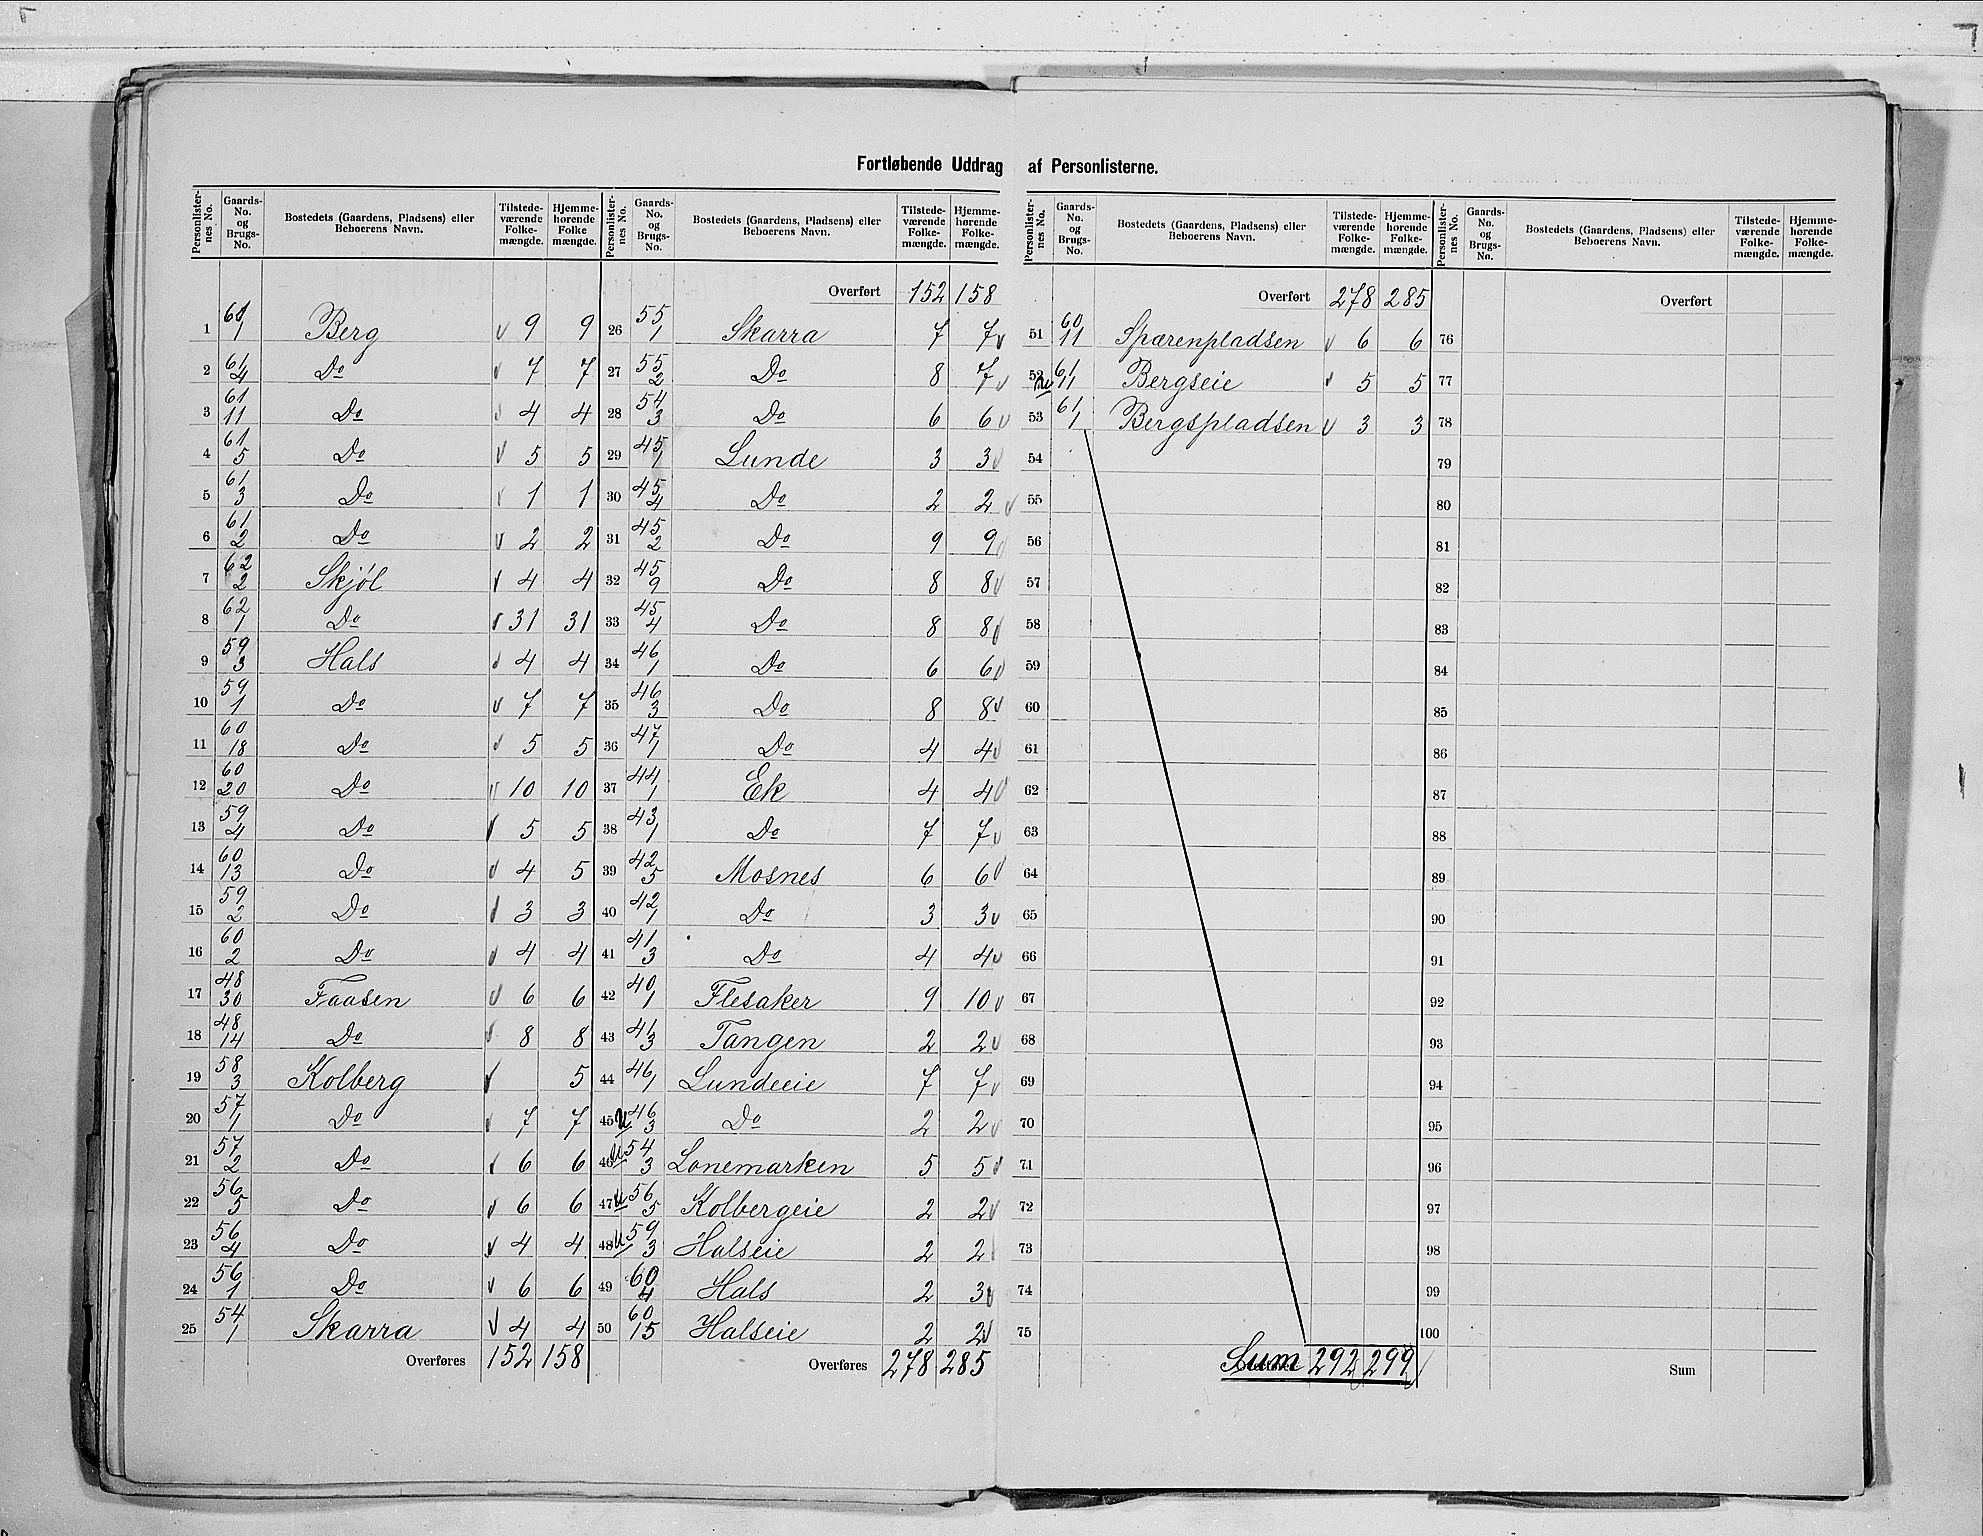 Fortløbende Uddrag af Personlisterne.
Personlisternes No. Gaards-No. og Brugs-No. Bostedets (Gaardens, Pladsens) eller Beboerens Navn. Tilstedeværende Folkemængde. Hjemmehørende Folkemængde.
1 61/1 Berg 9 9
2 61/4 Do 7 7
3 61/11 Do 4 4
4 61/5 Do 5 5
5 61/3 Do 1 1
6 61/2 Do 2 2
7 62/2 Skjøl 4 4
8 62/1 Do 31 31
9 59/3 Hals 4 4
10 59/1 Do 7 7
11 60/18 Do 5 5
12 60/20 Do 10 10
13 59/4 Do 5 5
14 60/13 Do 4 5
15 59/2 Do 3 3
16 60/2 Do 4 4
17 48/30 Faasen 6 6
18 48/14 Do 8 8
19 58/3 Kolberg 5
20 57/1 Do 7 7
21 57/2 Do 6 6
22 56/5 Do 6 6
23 56/4 Do 4 4
24 56/1 Do 6 6
25 54/1 Skarra 4 4
Overføres 152 158
Personlisternes No. Gaards-No. og Brugs-No. Bostedets (Gaardens, Pladsens) eller Beboerens Navn. Tilstedeværende Folkemængde. Hjemmehørende Folkemængde.
Overført 152 158
26 55/1 Skarra 7 7
27 55/2 Do 8 7
28 54/3 Do 6 6
29 45/1 Lunde 3 3
30 45/4 Do 2 2
31 45/2 Do 9 9
32 45/9 Do 8 8
33 45/4 Do 8 8
34 46/1 Do 6 6
35 46/3 Do 8 8
36 47/1 Do 4 4
37 44/1 Ek 4 4
38 43/1 Do 7 7
39 42/5 Mosnes 6 6
40 42/1 Do 3 3
41 41/3 Do 4 4
42 40/1 Flesaker 9 10
43 41/3 Tangen 2 2
44 46/1 Lundeeie 7 7
45 U 46/3 Do 2 2
46 U 54/3 Lonemarken 5 5
47 U 56/5 Kolbergeie 2 2
48 U 59/3 Halseie 2 2
49 60/4 Hals 2 3
50 60/15 Halseie 2 2
Overføres 278 285
Personlisternes No. Gaards-No. og Brugs-No. Bostedets (Gaardens, Pladsens) eller Beboerens Navn. Tilstedeværende Folkemængde. Hjemmehørende Folkemængde.
Overført 278 285
51 60/11 Spærenpladsen 6 6
52 61/11 Bergseie 5 5
53 61/1 Bergspladsen 3 3
54
55
56
57
58
59
60
61
62
63
64
65
66
67
68
69
70
71
72
73
74
75
Sum 292 299
Personlisternes No. Gaards-No. og Brugs-No. Bostedets (Gaardens, Pladsens) eller Beboerens Navn. Tilstedeværende Folkemængde. Hjemmehørende Folkemængde.
Overført
76
77
78
79
80
81
82
83
84
85
86
87
88
89
90
91
92
93
94
95
96
97
98
99
100
Sum